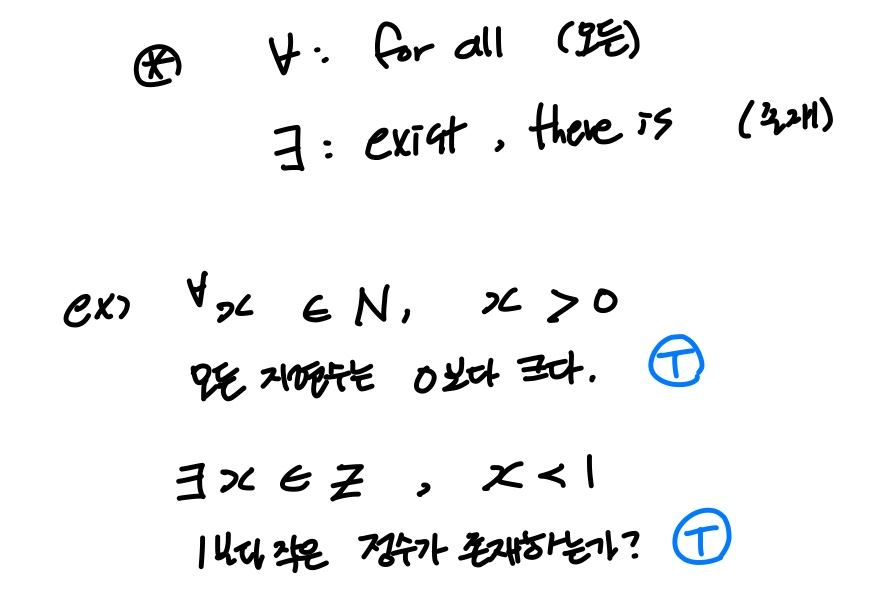 ⊛ ∀: for all (모든)
∃: exist, there is (존재)
ex) ∀x ∈ N, x > 0
모든 자연수는 0보다 크다. Ⓣ
∃x ∈ Z, x < 1
1보다 작은 정수가 존재하는가? Ⓣ